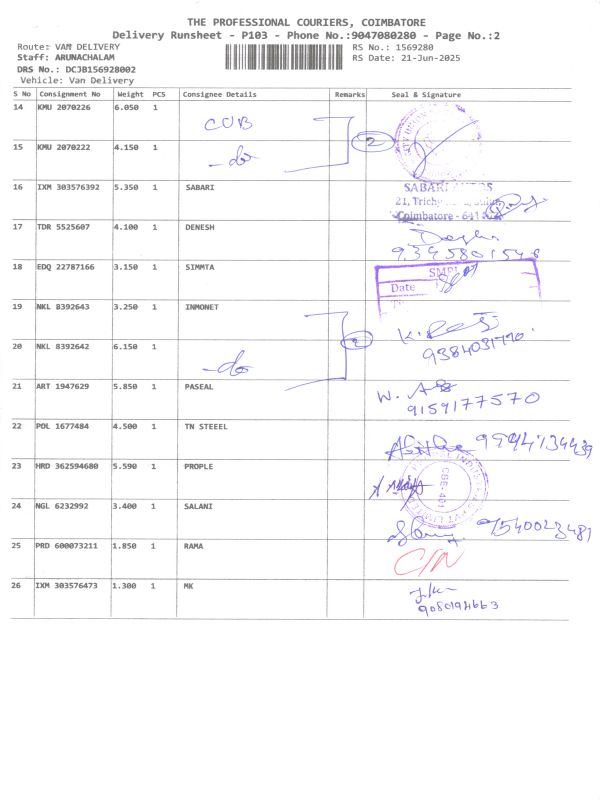 THE PROFESSIONAL COURIERS, COIMBATORE
Delivery Runsheet - P103 - Phone No.:9047080280 - Page No.:2
Route: VAN DELIVERY RS No.: 1569280
Staff: ARUNACHALAM RS Date: 21-Jun-2025
DRS No.: DCJB156928002
Vehicle: Van Delivery
S No Consignment No Weight PCS Consignee Details Remarks Seal & Signature
14 KMU 2070226 6.050 1 CUB
15 KMU 2070222 4.150 1 -do- 2
16 IXM 303576392 5.350 1 SABARI SABARI
21, Trichy
Coimbatore - 641
17 TDR 5525607 4.100 1 DENESH
9345801548
18 EDQ 22787166 3.150 1 SIMMTA
Date
19 NKL 8392643 3.250 1 INMONET
20 NKL 8392642 6.150 1 -do- 2 9384031770
21 ART 1947629 5.850 1 PASEAL
9159177570
22 POL 1677484 4.500 1 TN STEEEL 9994734439
23 HRD 362594680 5.590 1 PROPLE
24 NGL 6232992 3.400 1 SALANI 9540023481
25 PRD 600073211 1.850 1 RAMA
26 IXM 303576473 1.300 1 MK
9080194663